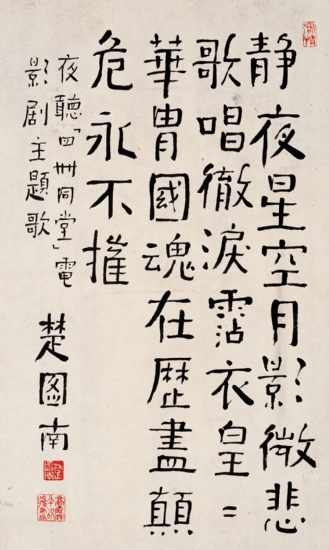 静夜星空月影微悲
歌唱徹淚霑衣皇〻
華胄國魂在歷盡顛
危永不摧
夜聽「四世同堂」電
影剧主題歌
楚圖南